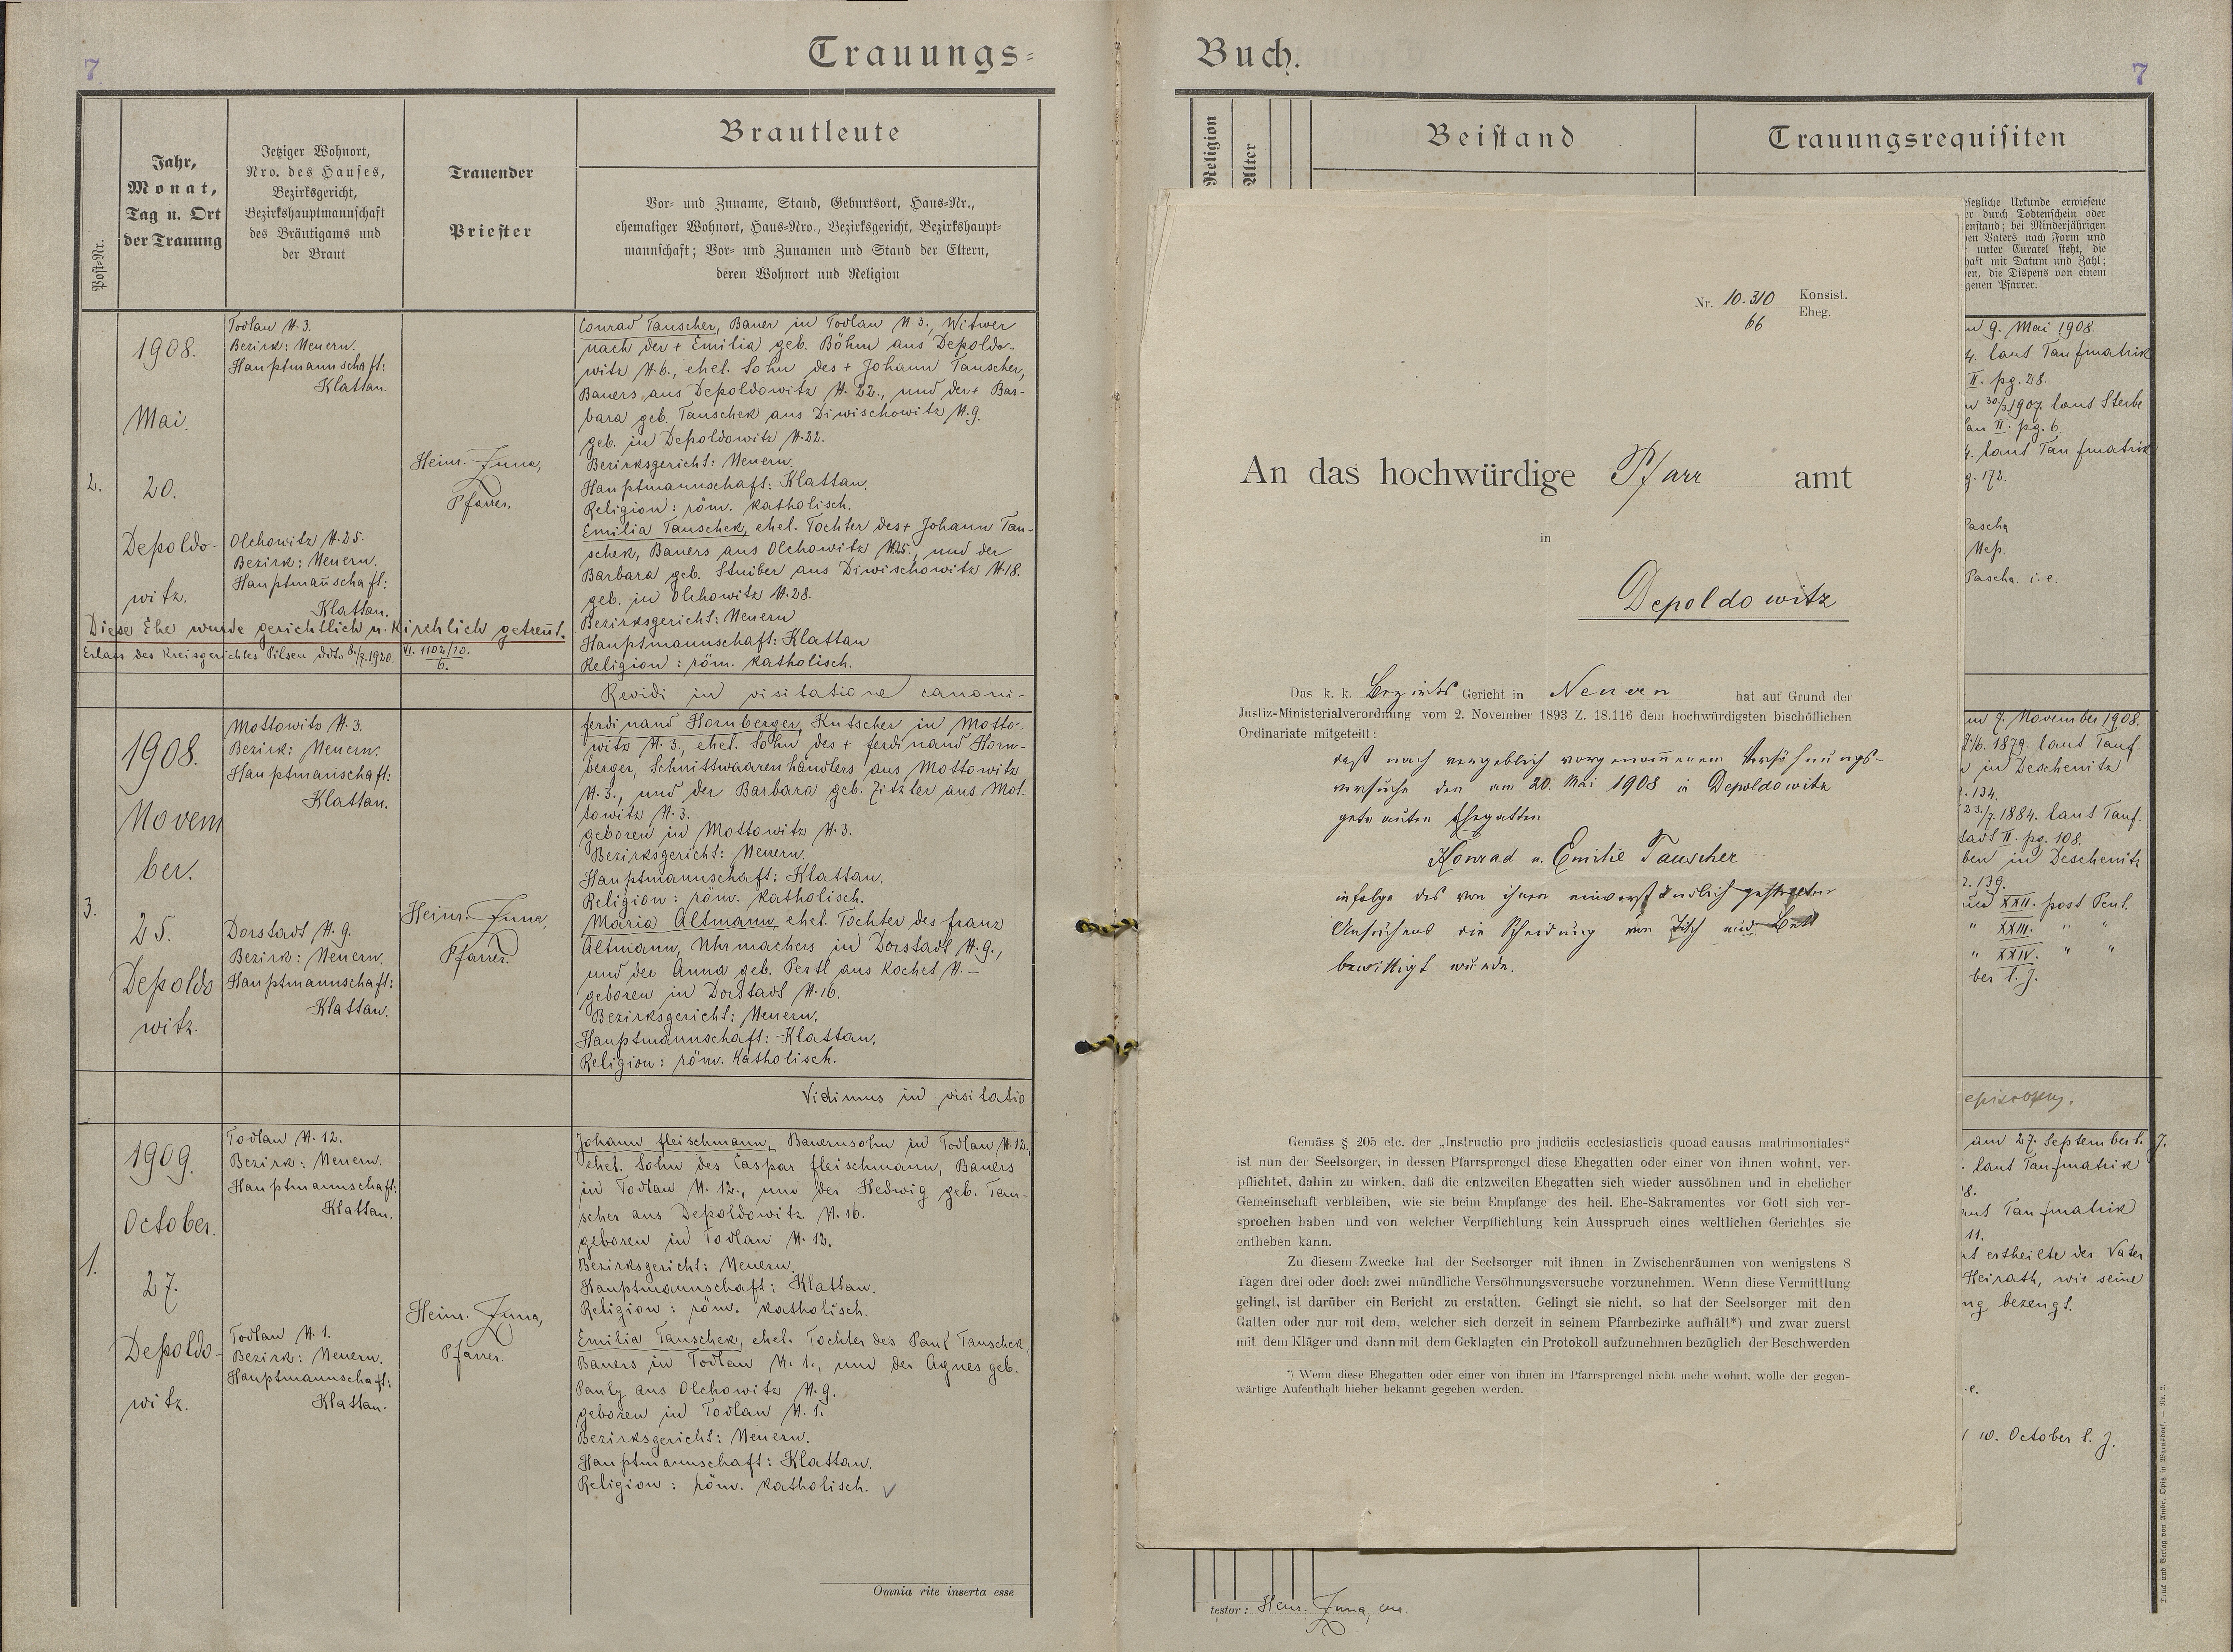 7
Trauungs=
Post-Nr.
Jahr,
Monat,
Tag u. Ort
der Trauung
Jetziger Wohnort,
Nro. des Hauses,
Bezirksgericht,
Bezirkshauptmannschaft
des Bräutigams und
der Braut
Trauender
Priester
Brautleute
Vor- und Zuname, Stand, Geburtsort, Haus-Nr.,
ehemaliger Wohnort, Haus-Nro., Bezirksgericht, Bezirkshaupt-
mannschaft; Vor- und Zunamen und Stand der Eltern,
deren Wohnort und Religion
2.
1908.
Mai.
20.
Depoldo-
witz.
Todlau N. 3.
Bezirk: Neuern.
Hauptmannschaft:
Klattau.
Olchowitz N. 25.
Bezirk: Neuern.
Hauptmañschaft:
Klattau.
Heinr.
Pfarrer.
Conrad Tauscher, Bauer in Todlau N. 3., Witwer
nach der + Emilia geb. Böhm aus Depoldo-
witz N. 6., ehel. Sohn des + Johann Tauscher,
Bauers aus Depoldowitz N. 22., und der + Bar-
bara geb. Tauschek aus Diwischowitz N. 9.
geb. in Depoldowitz N. 22.
Bezirksgericht: Neuern.
Hauptmannschaft: Klattau.
Religion: röm. katholisch.
Emilia Tauschek, ehel. Tochter des + Johann Tau-
schek, Bauers aus Olchowitz N. 25., und der
Barbara geb. Stuiber aus Diwischowitz N. 18.
geb. in Olchowitz N. 28.
Bezirksgericht: Neuern
Hauptmannschaft: Klattau
Religion: röm. katholisch.
Diese Ehe wurde gerichtlich u. kirchlich getreñt.
Erlass des Kreisgerichtes Pilsen ddto 8./7. 1920. VI. 1102/20.
6.
Revidi in visitatione canoni-
3.
1908.
Novem
ber.
25.
Depoldo
witz.
Mottowitz N. 3.
Bezirk: Neuern.
Hauptmañschaft:
Klattau.
Dorstadt N. 9.
Bezirk: Neuern.
Hauptmannschaft:
Klattau.
Heinr.
Pfarrer.
Ferdinand Hornberger, Kutscher in Motto-
witz N. 3., ehel. Sohn des + Ferdinand Horn-
berger, Schnittwaarenhändlers aus Mottowitz
N. 3., und der Barbara geb. Zitzler aus Mot-
towitz N. 3.
geboren in Mottowitz N. 3.
Bezirksgericht: Neuern.
Hauptmannschaft: Klattau.
Religion: röm. katholisch.
Maria Altmann, ehel. Tochter des Franz
Altmann, Uhrmachers in Dorstadt N. 9.,
und der Anna geb. Pertl aus Kochet N. –
geboren in Dorstadt N. 16.
Bezirksgericht: Neuern.
Hauptmannschaft: Klattau.
Religion: röm. katholisch.
Vidimus in visitatio
1.
1909.
October.
27.
Depoldo-
witz.
Todlau N. 12.
Bezirk: Neuern.
Hauptmannschaft:
Klattau.
Todlau N. 1.
Bezirk: Neuern.
Hauptmannschaft:
Klattau.
Heinr.
Pfarrer.
Johann Fleischmann, Bauernsohn in Todlau N. 12.,
ehel. Sohn des Caspar Fleischmann, Bauers
in Todlau N. 12., und der Hedwig geb. Tau-
scher aus Depoldowitz N. 16.
geboren in Todlau N. 12.
Bezirksgericht: Neuern.
Hauptmannschaft: Klattau.
Religion: röm. katholisch.
Emilia Tauschek, ehel. Tochter des Paul Tauschek,
Bauers in Todlau N. 1., und der Agnes geb.
Pauly aus Olchowitz N. 9.
geboren in Todlau N. 1.
Bezirksgericht: Neuern.
Hauptmannschaft: Klattau.
Religion: röm. katholisch.
Omnia rite inserta esse
Buch.
7
Religion
Alter
Beistand
Trauungsrequisiten
Nr. 10.310 Konsist.
66 Eheg.
An das hochwürdige Pfarr amt
in
Depoldowitz
Das k. k. Bezirks Gericht in Neuern hat auf Grund der
Justiz-Ministerialverordnung vom 2. November 1893 Z. 18.116 dem hochwürdigsten bischöflichen
Ordinariate mitgeteilt:
daß nach vergeblich vorgenom̅enem Versöhnungs-
versuche den am 20. Mai 1908 in Depoldowitz
getrauten Ehegatten
Konrad u. Emilie Tauscher
infolge des von ihnen einverständlich gestellten
Ansuchens die Scheidung von Tisch und Bett
bewilligt wurde.
Gemäss § 205 etc. der „Instructio pro judiciis ecclesiasticis quoad causas matrimoniales“
ist nun der Seelsorger, in dessen Pfarrsprengel diese Ehegatten oder einer von ihnen wohnt, ver-
pflichtet, dahin zu wirken, daß die entzweiten Ehegatten sich wieder aussöhnen und in ehelicher
Gemeinschaft verbleiben, wie sie beim Empfange des heil. Ehe-Sakramentes vor Gott sich ver-
sprochen haben und von welcher Verpflichtung kein Ausspruch eines weltlichen Gerichtes sie
entheben kann.
Zu diesem Zwecke hat der Seelsorger mit ihnen in Zwischenräumen von wenigstens 8
Tagen drei oder doch zwei mündliche Versöhnungsversuche vorzunehmen. Wenn diese Vermittlung
gelingt, ist darüber ein Bericht zu erstatten. Gelingt sie nicht, so hat der Seelsorger mit den
Gatten oder nur mit dem, welcher sich derzeit in seinem Pfarrbezirke aufhält*) und zwar zuerst
mit dem Kläger und dann mit dem Geklagten ein Protokoll aufzunehmen bezüglich der Beschwerden
*) Wenn diese Ehegatten oder einer von ihnen im Pfarrsprengel nicht mehr wohnt, wolle der gegen-
wärtige Aufenthalt hieher bekannt gegeben werden.
setzliche Urkunde erwiesene
er durch Todtenschein oder
enstand; bei Minderjährigen
en Vaters nach Form und
unter Curatel steht, die
haft mit Datum und Zahl;
en, die Dispens von einem
genen Pfarrer.
9. Mai 1908.
4. laut Taufmatrik
II. pg. 28.
30/3 1907. laut Sterbe
II. pg. 6.
4. laut Taufmatrik
g. 172.
Pascha
Nep.
Pascha. i. e.
7. November 1908.
/6. 1879. laut Tauf-
in Deschenitz
134.
23./7. 1884. laut Tauf-
stadt II. pg. 108.
ben in Deschenitz
139.
XXII. post Pent.
" XXIII. " "
" XXIV. " "
ber l. J.
am 27. September l. J.
laut Taufmatrik
8.
laut Taufmatrik
11.
ertheilte der Vater
Heirath, wie seine
ng bezeugt.
10. October l. J.
testor: Heinr.
Druck und Verlag von Ambr. Opitz in Warnsdorf. — Nr. 2.